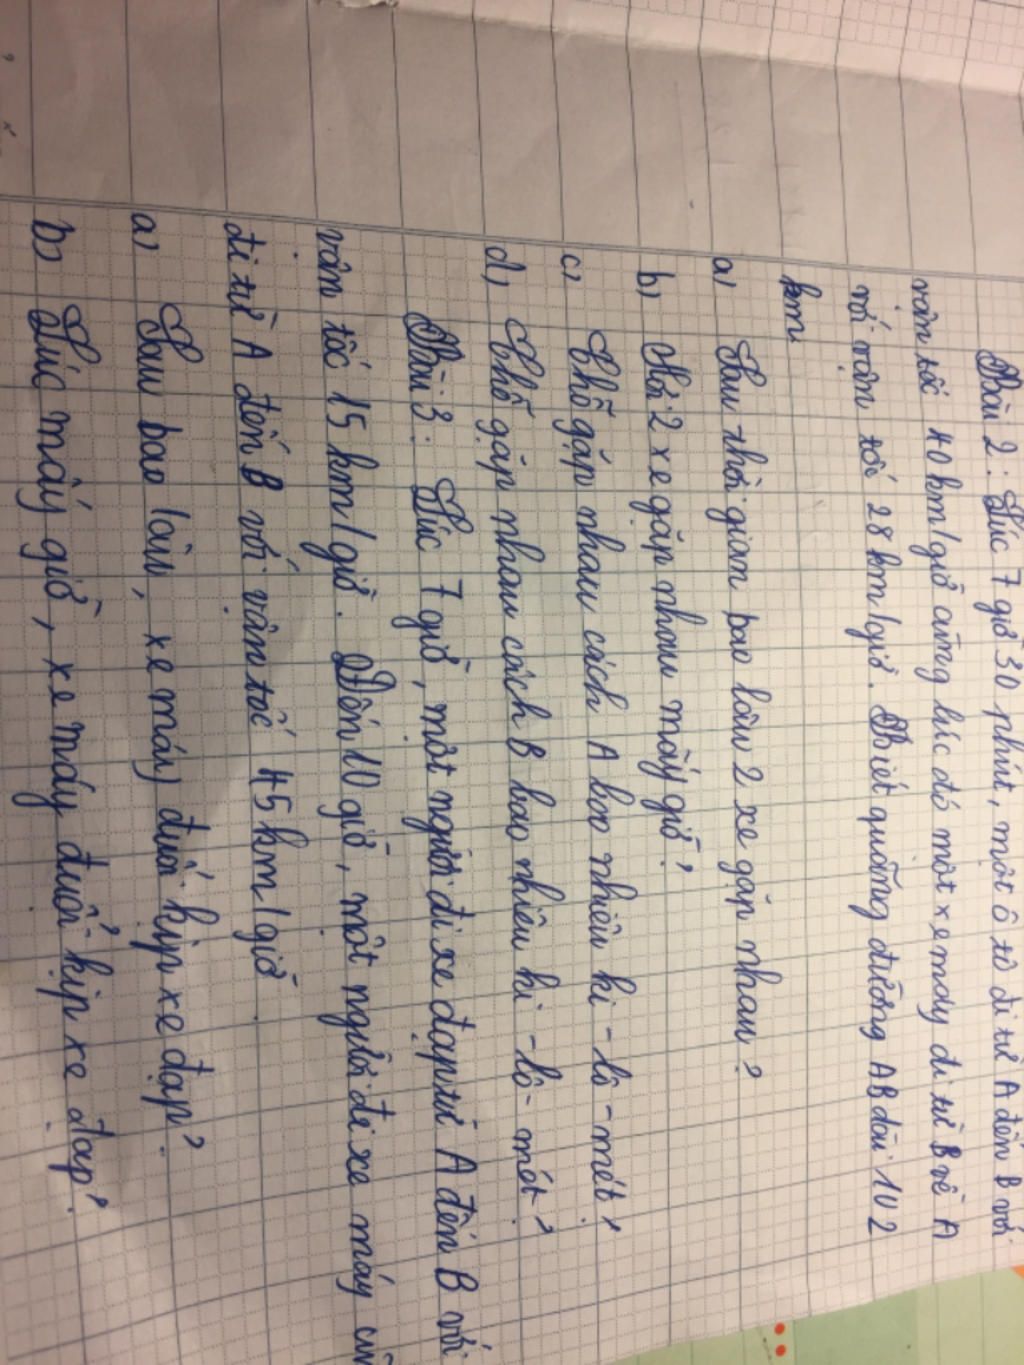 Bài 2: Lúc 7 giờ 30 phút, một ô tô đi từ A đến B với
vận tốc 40 km/giờ cũng lúc đó một xe máy đi từ B về A
với vận tốc 28 km/giờ. Biết quãng đường AB dài 102
km
a) Sau thời gian bao lâu 2 xe gặp nhau?
b) Hỏi 2 xe gặp nhau mấy giờ?
c) Chỗ gặp nhau cách A bao nhiêu ki-lô-mét?
d) Chỗ gặp nhau cách B bao nhiêu ki-lô-mét?
Bài 3: Lúc 7 giờ, một người đi xe đạp từ A đến B với
vân tốc 15 km/giờ. Đến 10 giờ, một người đi xe máy
đi từ A đến B với vân tốc 45 km/giờ
a) Sau bao lâu, xe máy đuổi kịp xe đạp?
b) Lúc mấy giờ, xe máy đuổi kịp xe đạp?